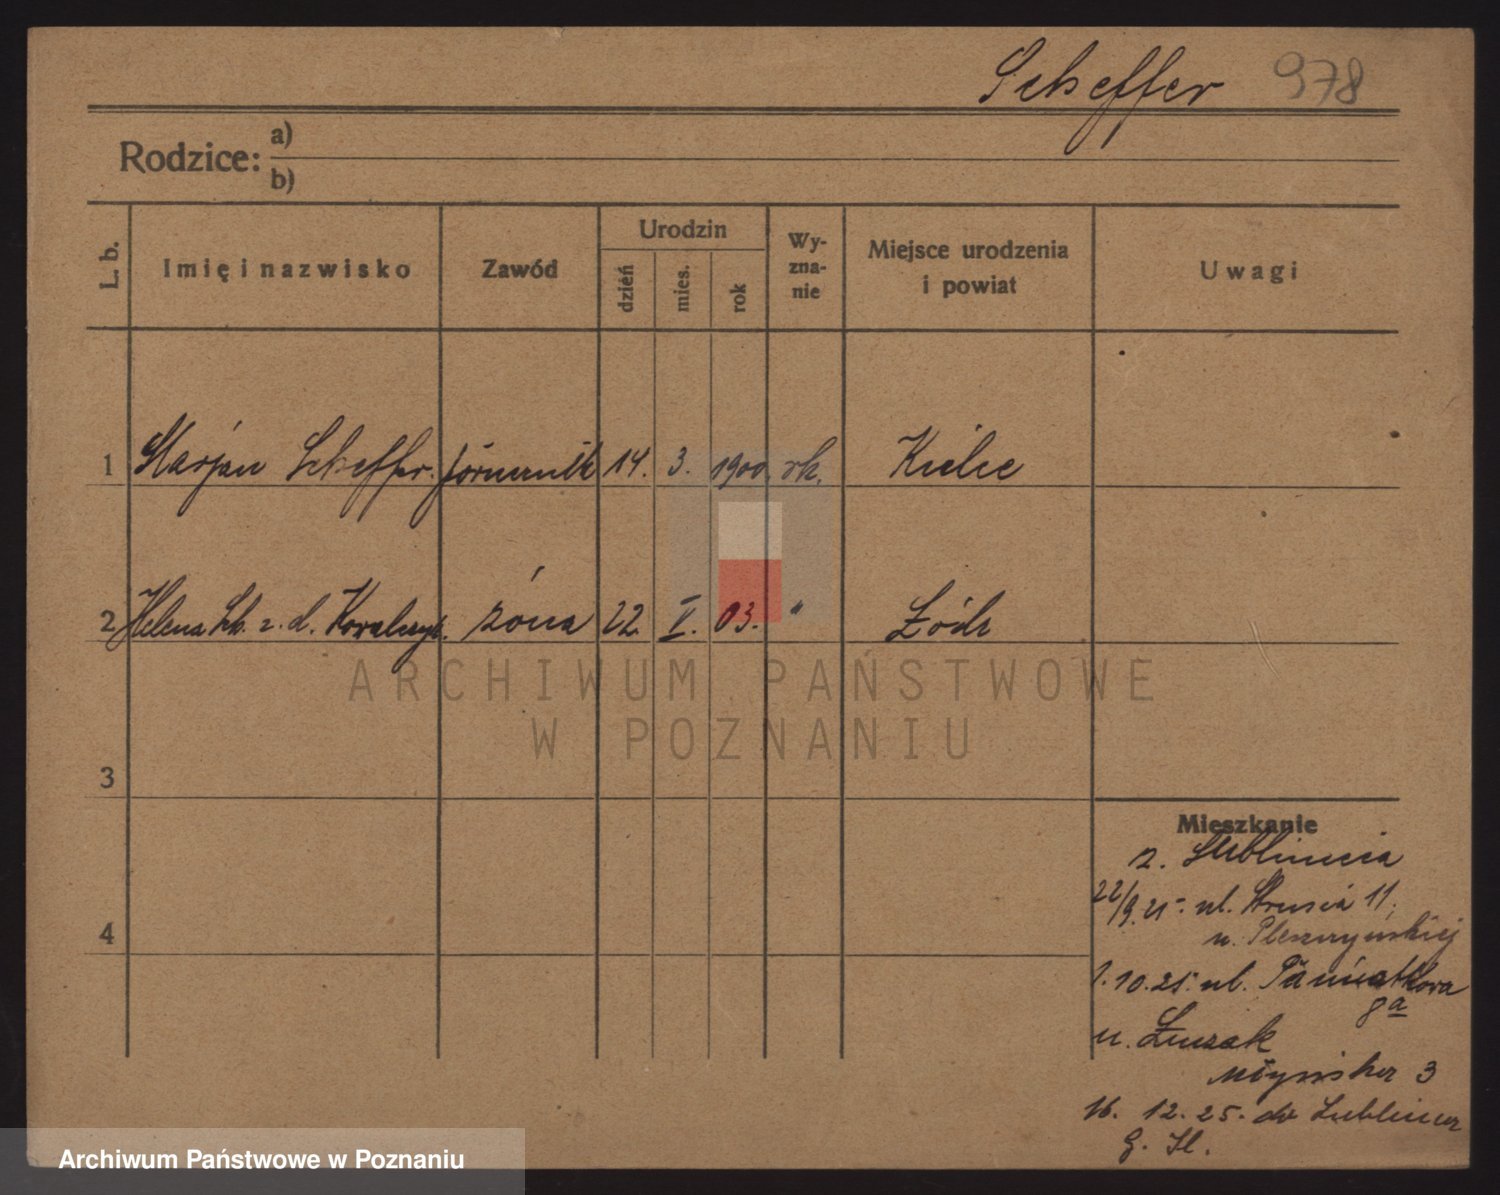 Scheffer 978
Rodzice: a)
b)
L. b. Imię i nazwisko Zawód Urodzin dzień mies. rok Wyzna-nie Miejsce urodzenia i powiat Uwagi
1 Marjan Scheffer. górnernik 14. 3. 1900. rk. Kielce
2 Helena Sch. z. d. Kowalczyk. żóna 22. V. 03. " Łódz
ARCHIWUM PAŃSTWOWE
W POZNANIU
3
Mieszkanie
z. Lublińca
22/9.25. ul. Strusia 11.
4
u. Pleszczyńskiej
1.10.25. ul. Pamiątkowa
8a
u.
Młyńska 3
16. 12. 25. do Lublińca
G. Śl.
Archiwum Państwowe w Poznaniu